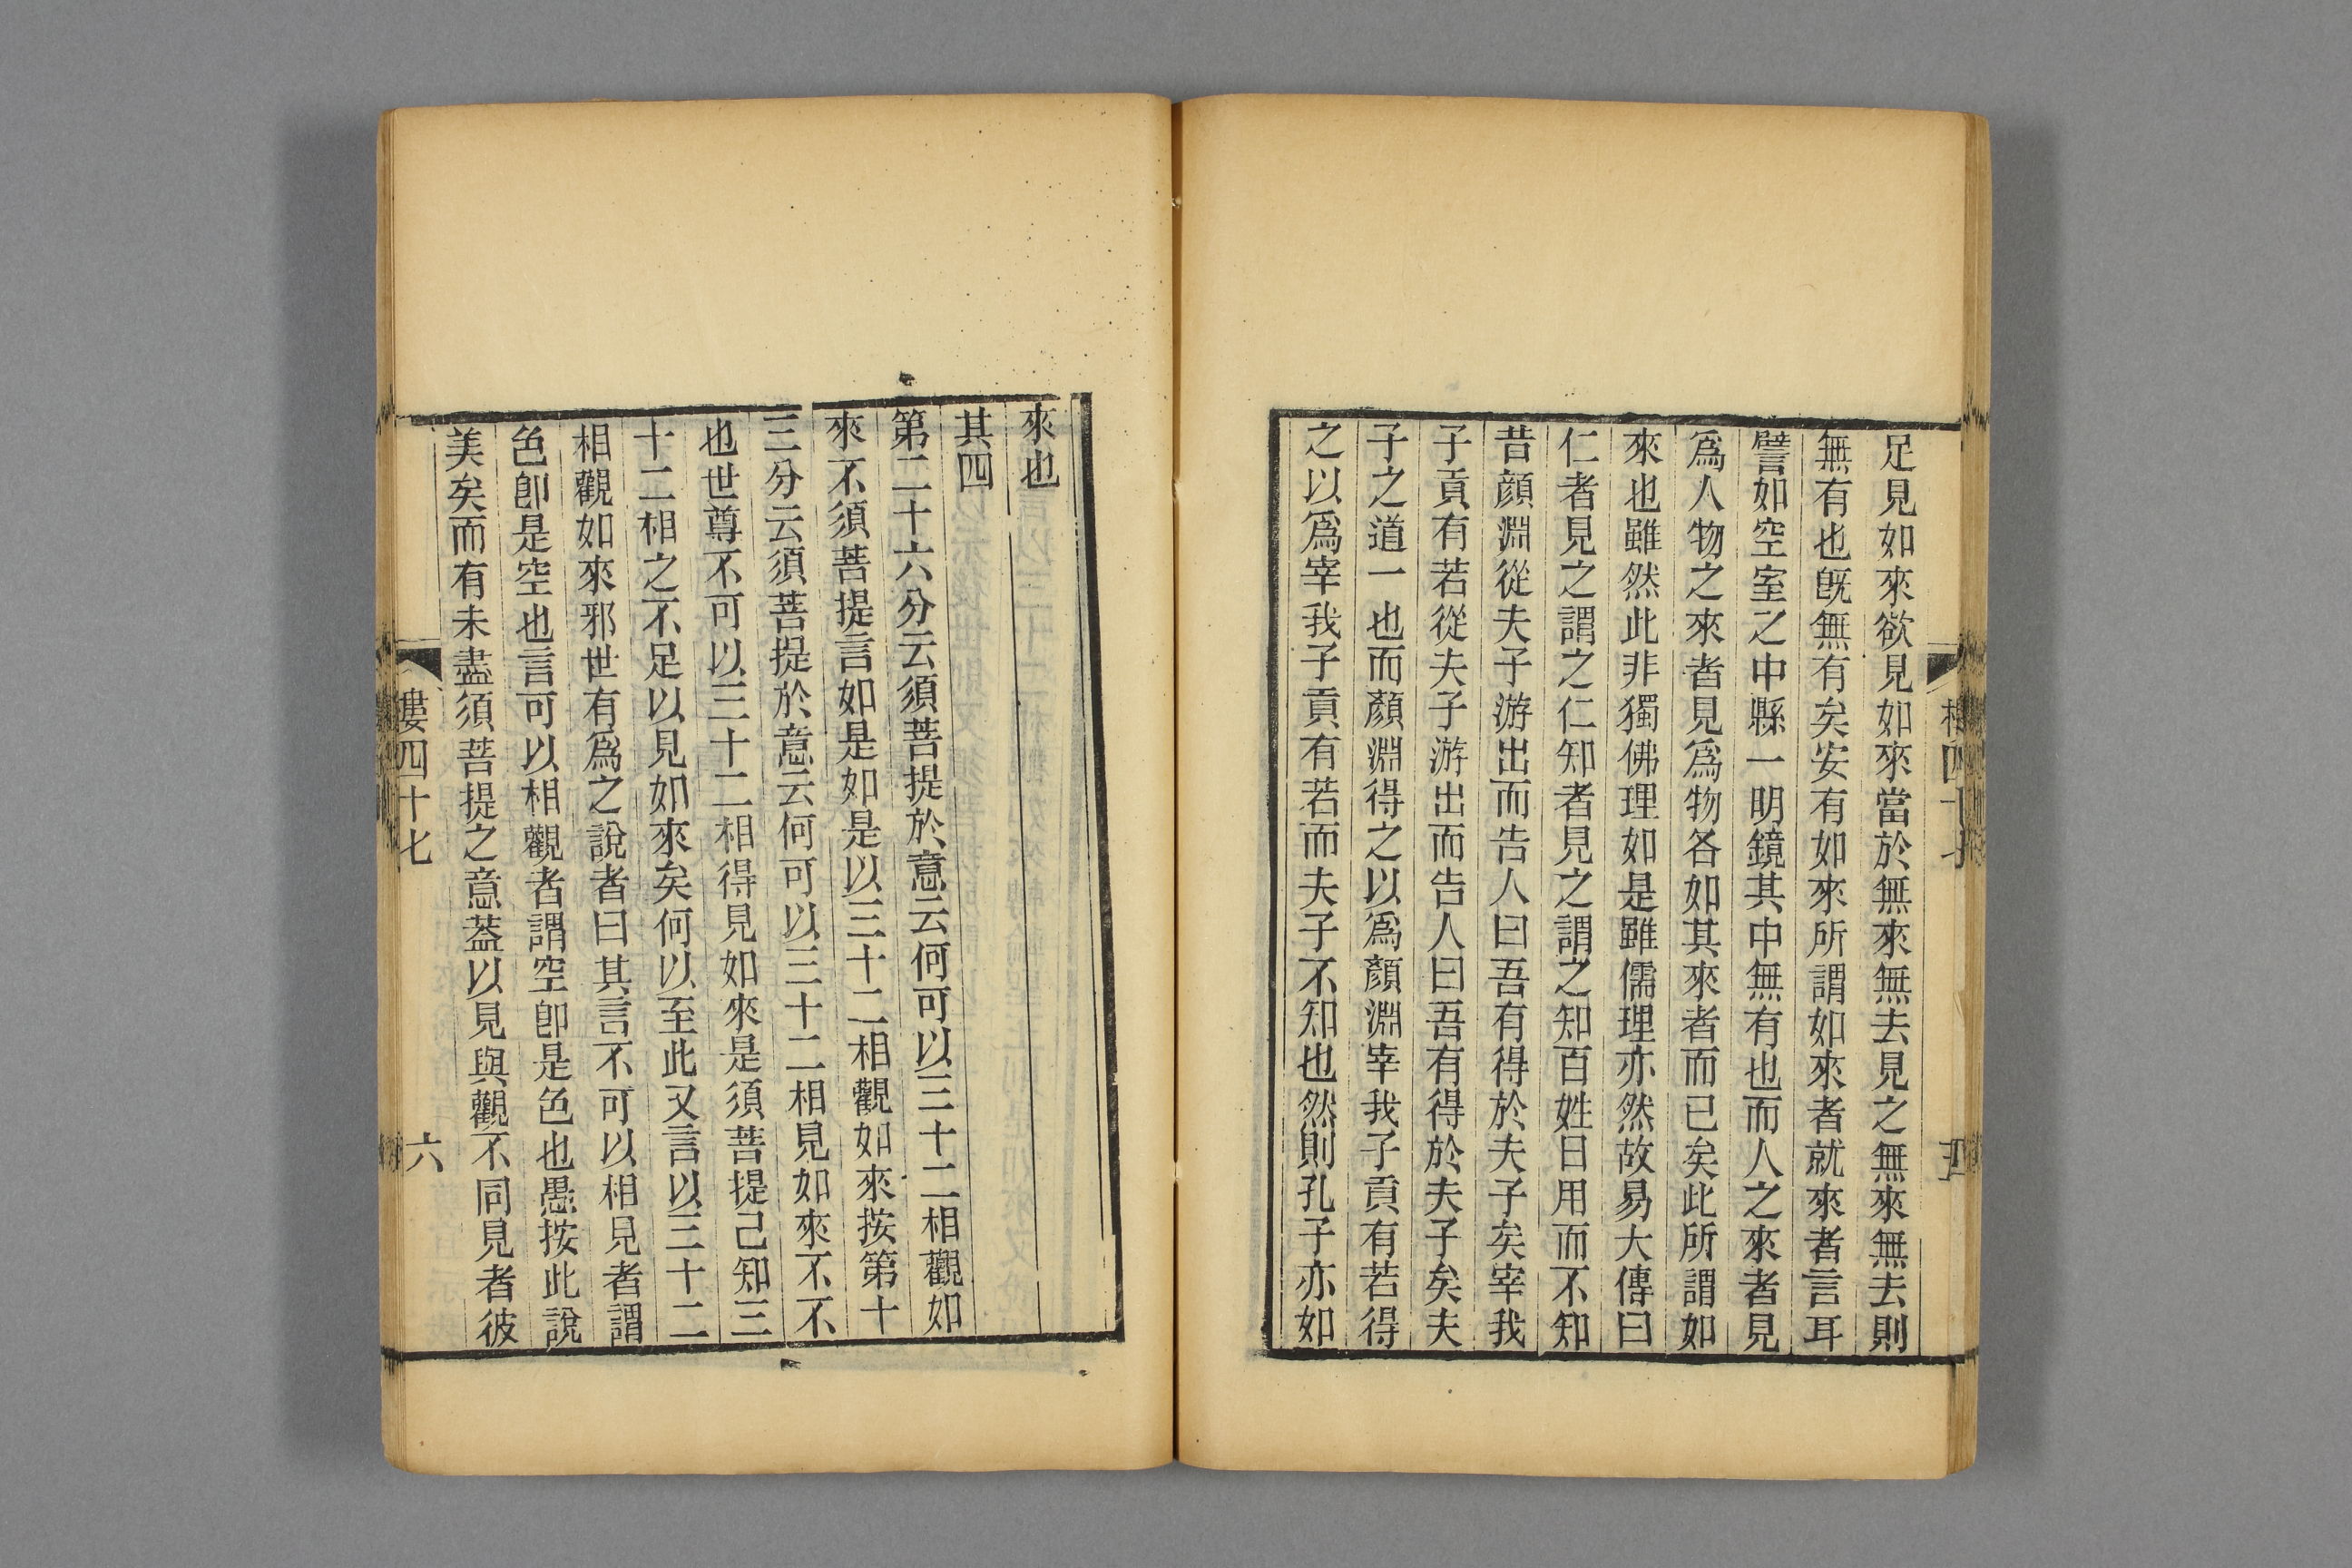 足見如來欲見如來當於無來無去見之無來無去則
無有也旣無有矣安有如來所謂如來者就來者言耳
譬如空室之中縣一明鏡其中無有也而人之來者見
爲人物之來者見爲物各如其來者而已矣此所謂如
來也雖然此非獨佛理如是雖儒理亦然故易大傳曰
仁者見之謂之仁知者見之謂之知百姓日用而不知
昔顏淵從夫子游出而告人曰吾有得於夫子矣宰我
子貢有若從夫子游出而告人曰吾有得於夫子矣夫
子之道一也而顏淵得之以爲顏淵宰我子貢有若得
之以爲宰我子貢有若而夫子不知也然則孔子亦如
來也
其四
第二十六分云須菩提於意云何可以三十二相觀如
來不須菩提言如是如是以三十二相觀如來按第十
三分云須菩提於意云何可以三十二相見如來不不
也世尊不可以三十二相得見如來是須菩提已知三
十二相之不足以見如來矣何以至此又言以三十二
相觀如來邪世有爲之說者曰其言不可以相見者謂
色卽是空也言可以相觀者謂空卽是色也愚按此說
美矣而有未盡須菩提之意蓋以見與觀不同見者彼
四十七
六